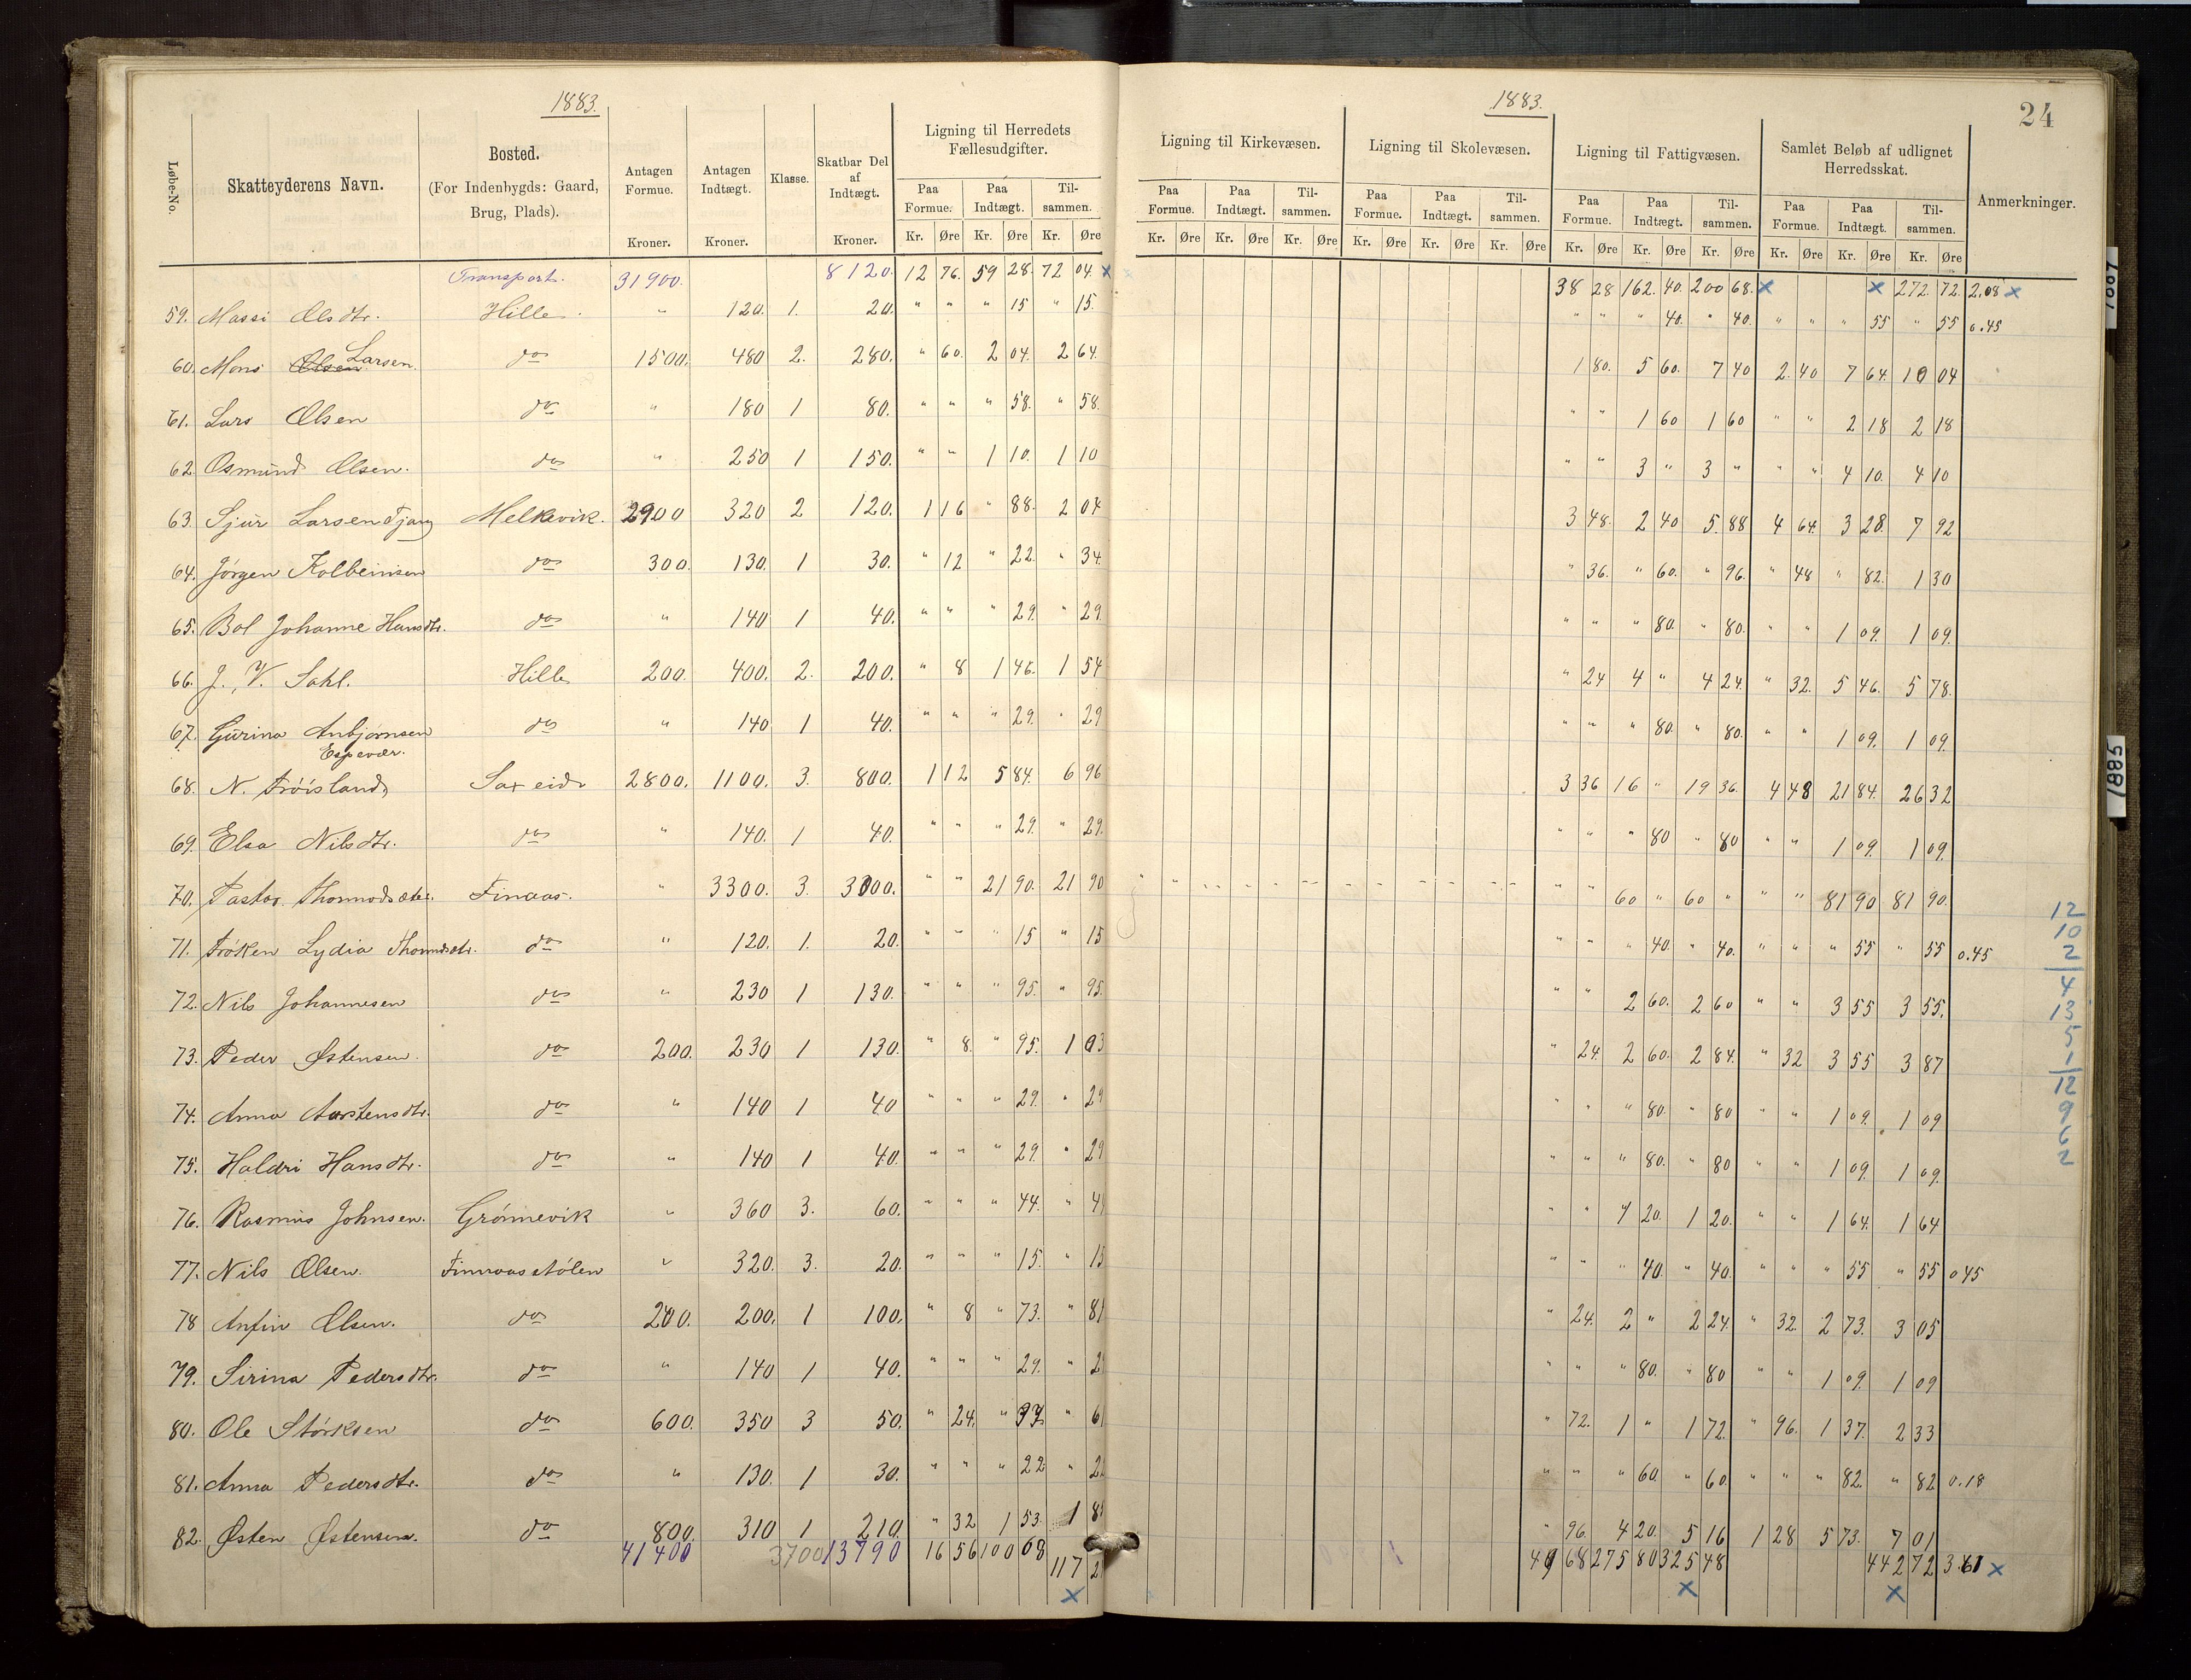 1883.
1883.
24
Løbe-No.
Skatteyderens Navn.
Bosted.
(For Indenbygds: Gaard, Brug, Plads).
Antagen Formue.
Kroner.
Antagen Indtægt.
Kroner.
Klasse.
Skatbar Del af Indtægt.
Kroner.
Ligning til Herredets Fællesudgifter.
Paa Formue. Paa Indtægt. Tilsammen.
Kr. Øre Kr. Øre Kr. Øre
Ligning til Kirkevæsen.
Paa Formue. Paa Indtægt. Tilsammen.
Kr. Øre Kr. Øre Kr. Øre
Ligning til Skolevæsen.
Paa Formue. Paa Indtægt. Tilsammen.
Kr. Øre Kr. Øre Kr. Øre
Ligning til Fattigvæsen.
Paa Formue. Paa Indtægt. Tilsammen.
Kr. Øre Kr. Øre Kr. Øre
Samlet Beløb af udlignet Herredsskat.
Paa Formue. Paa Indtægt. Tilsammen.
Kr. Øre Kr. Øre Kr. Øre
Anmerkninger.
Transport. 31900. 8120. 12 76. 59 28. 72 04. x 38 28 162. 40. 200 68. x x 272. 72. 2.08 x
59. Massi Olsdtr. Hille " 120. 1. 20. " " " 15 " 15. " " " 40. " 40. " " " 55 " 55 0.45
60. Mons Olsen Larsen. do 1500. 480 2. 280. " 60. 2 04. 2 64. 1 80. 5 60. 7 40 2. 40 7 64. 10 04
61. Lars Olsen do " 180 1 80. " " " 58. " 58. " " 1 60 1 60 " " 2 18 2 18
62. Osmund Olsen. do " 250 1 150. " " 1 10. 1 10 " " 3 " 3 " " " 4 10. 4 10
63. Sjur Larsen Melkevik. 2900 320 2 120. 1 16 " 88. 2 04 3 48. 2 40 5. 88 4 64. 3 28. 7 92
64. Jørgen Kolbeinsen do 300. 130. 1 30. " 12 " 22. " 34. " 36. " 60. " 96. " 48 " 82. 1 30
65. Bol Johanne Hansdtr. do " 140 1 40. " " " 29. " 29 " " " 80. " 80. " " 1 09. 1 09.
66. J. V. Sahl. Hille 200. 400. 2. 200. " 8 1 46. 1 54 " 24 4 " 4 24. " 32. 5 46. 5 78.
67. Gurina Anbjørnsen Espevær. do " 140 1 40. " " " 29. " 29 " " " 80. " 80. " " 1 09. 1 09.
68. N. Frøisland Saxeid 2800. 1100. 3. 800. 1 12 5 84. 6 96 3 36 16 " 19 36. 4 48 21 84. 26 32
69. Elsa Nilsdtr. do " 140. 1 40. " " " 29. " 29. " " " 80 " 80 " " 1 09. 1 09.
70. Pastor Finaas. " 3300. 3. 3000. " " 21 90. 21 90 " " 60 " 60 " " " 81 90 81 90.
71. Frøken Lydia do " 120. 1. 20. " " " 15 " 15 " " " 40. " 40. " " " 55 " 55 0.45
72. Nils Johannesen do " 230 1 130. " " " 95. " 95. " " 2 60. 2 60 " " 3 55 3 55.
73. Peder Østensen. do 200. 230 1 130. " 8. " 95. 1 03 " 24. 2 60. 2 84. " 32 3 55 3 87
74. Anna Aarstensdtr. do " 140 1 40 " " " 29. " 29 " " " 80. " 80 " " 1 09. 1 09
75. Haldri Hansdtr. do " 140 1 40. " " " 29. " 29 " " " 80. " 80 " " 1 09. 1 09.
76. Rasmus Johnsen. Grønnevik " 360 3. 60. " " " 44. " 4 " " 1 20. 1 20. " " 1 64. 1 64
77. Nils Olsen. Finnaasstølen " 320. 3. 20. " " " 15. " 15 " " " 40. " 40. " " " 55 " 55 0 45
78 Anfin Olsen. do 200. 200. 1 100. " 8 " 73. " 81 " 24. 2 " 2 24. " 32. 2 73. 3 05
79. Sirina Pedersdtr. do " 140 1 40. " " " 29. " 2 " " " 80. " 80 " " 1 09. 1 09
80. Ole Størksen do 600. 350 3 50. " 24. " 37. " 6 " 72. 1 " 1 72. " 96. 1 37. 2 33
81. Anna Pedersdtr. do " 130. 1 30. " " " 22 " 2 " " " 60. " 60. " " " 82. " 82 0.18
82. Østen Østensen. do 800. 310 1 210. " 32 1 53. 1 8 " 96. 4 20. 5 16 1 28 5 73. 7 01
41400 3700 13790 16 56 100 68 117 2 40 68 275 80 325 48 442 72 3.61 x
x x x
12
10
2
4
13
5
1
12
9
6
2
1887
1885